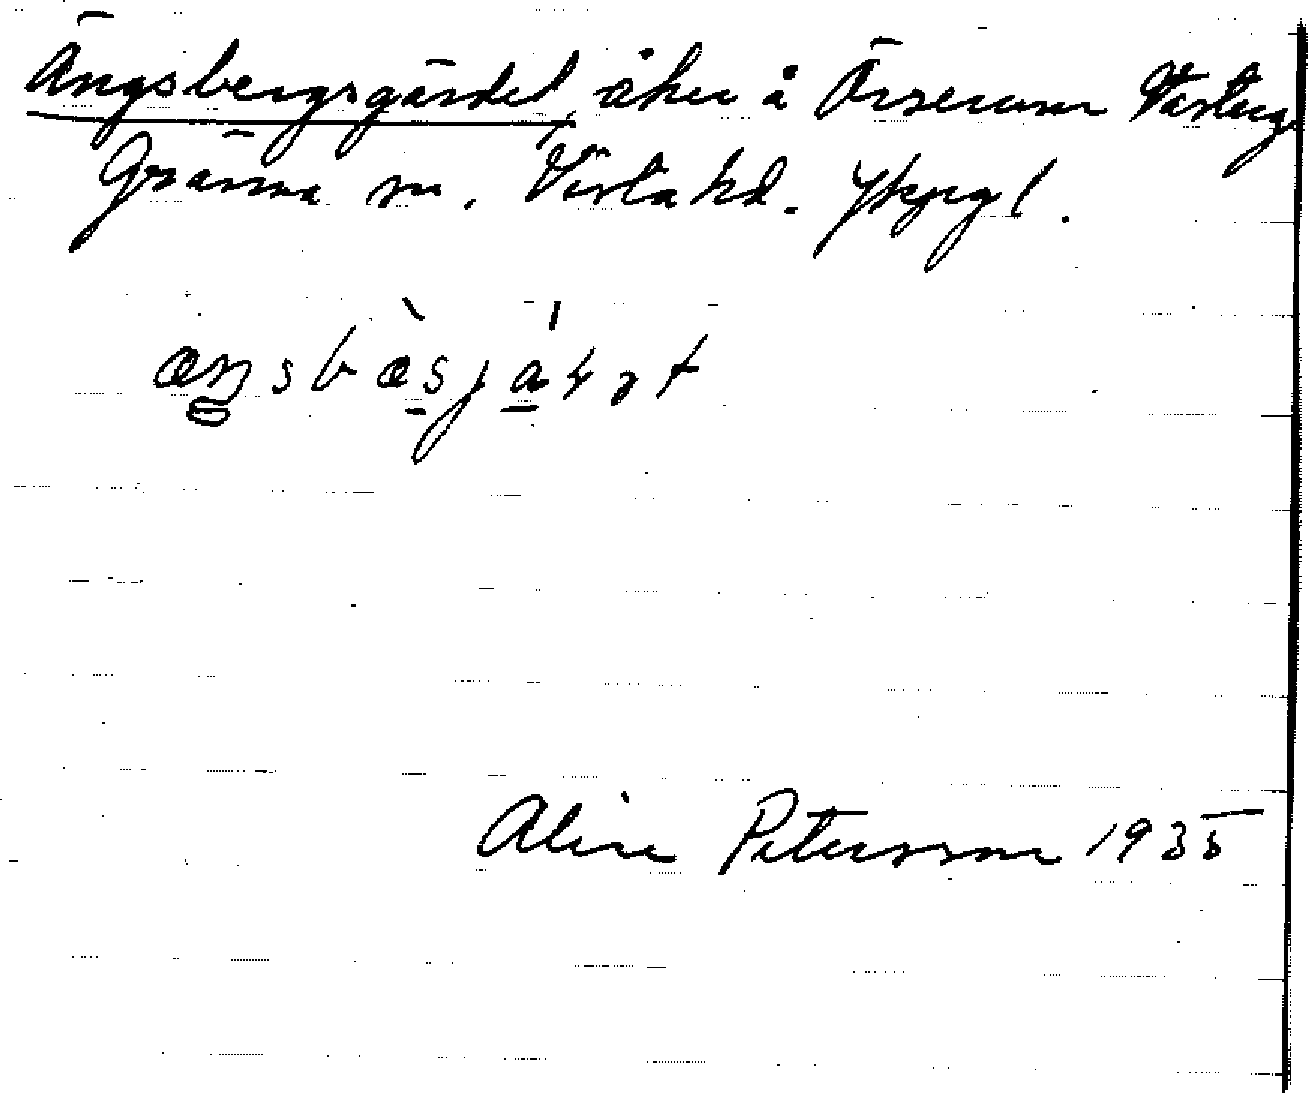 Ängsbergsgärdet, åker å Örserum Västerg
Gränna sn. Vista hd. Jkpgl.
æŋsbæsjáḷət
Aline Petersson 1935